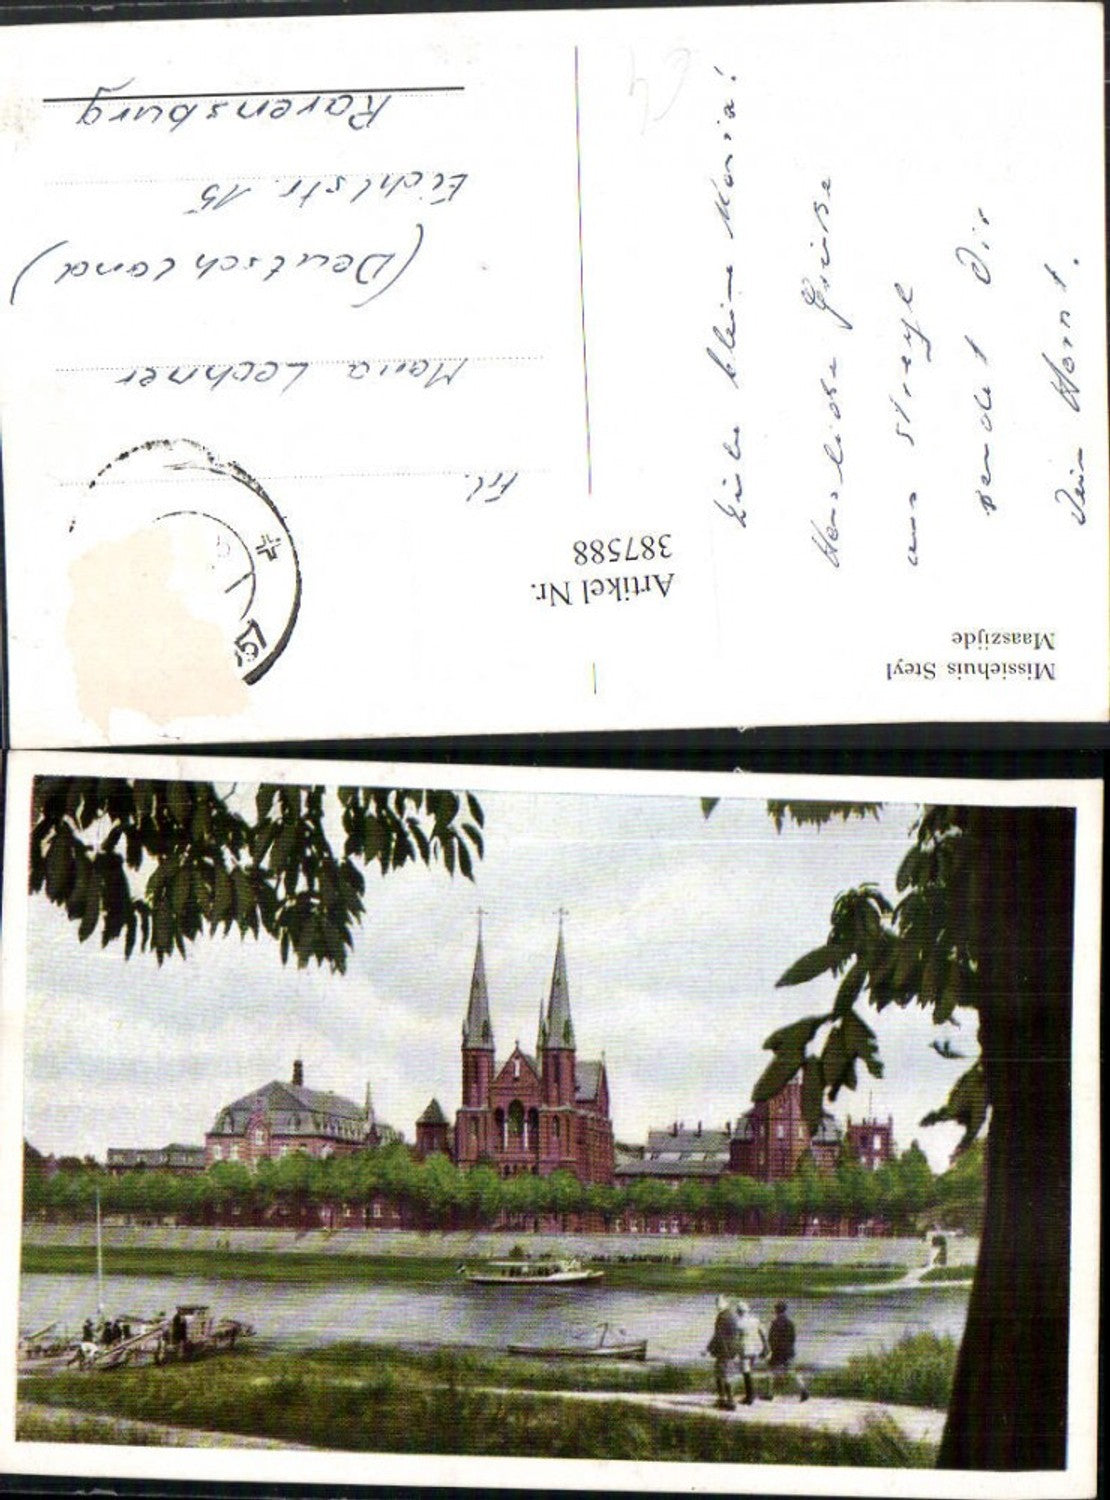 Missiehuis Steyl
Maaszijde
Artikel Nr.
387588
Liebe kleine Maria!
Herzliche Grüße
aus Steyl
sendet Dir
Dein Horst.
Frl.
Maria Lechner
(Deutschland)
Eichlstr. 15
Ravensburg